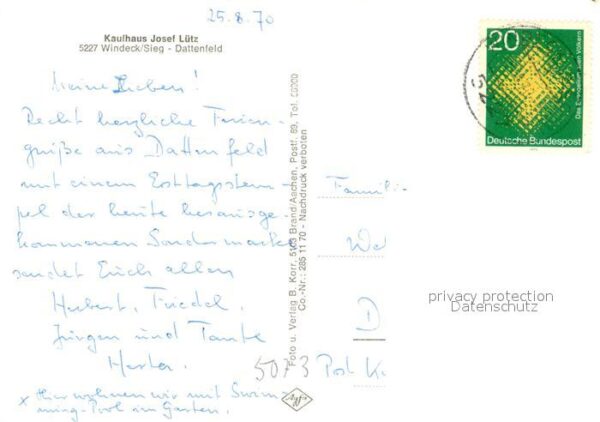 25.8.70
Kaufhaus Josef Lütz
5227 Windeck/Sieg - Dattenfeld
Meine Lieben!
Recht herzliche Ferien-
grüße aus Dattenfeld
mit einem Ersttagsstem-
pel der heute herausge-
kommenen Sondermarke
sendet Euch allen
Herbert, Friedel,
Jürgen und Tante
Herta.
x Hier wohnen wir mit Swim-
ming-Pool im Garten.
Foto u. Verlag B. Korr, 5103 Brand/Aachen, Postf. 89, Tel.
Co.-Nr.: 285 11 70 - Nachdruck verboten
Agfa
20
Das Evangelium den Völkern
Deutsche Bundespost
Famili
We
D
5073 Post K
privacy protection
Datenschutz